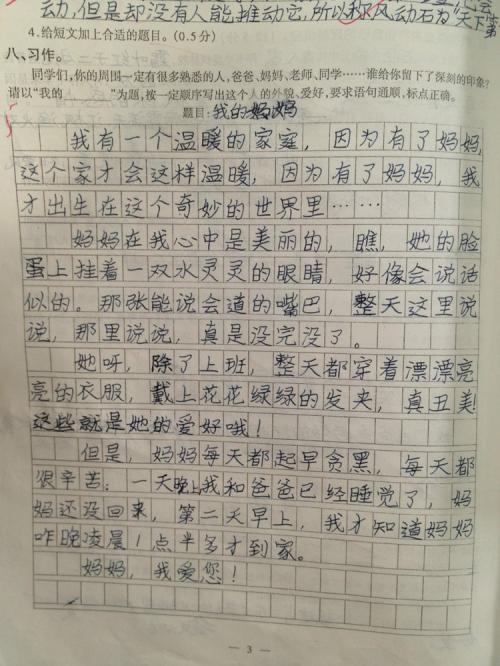 动，但是却没有人能推动它，所以称风动石为"天下第
4.给短文加上合适的题目。(0.5分)
八、习作。
同学们，你的周围一定有很多熟悉的人，爸爸、妈妈、老师、同学……谁给你留下了深刻的印象？
请以"我的________"为题，按一定顺序写出这个人的外貌、爱好，要求语句通顺，标点正确。
题目：我的妈妈
我有一个温暖的家庭，因为有了妈妈，
这个家才会这样温暖，因为有了妈妈，我
才出生在这个奇妙的世界里……
妈妈在我心中是美丽的，瞧，她的脸
蛋上挂着一双水灵灵的眼睛，好像会说话
似的。那张能说会道的嘴巴，整天这里说
说，那里说说，真是没完没了。
她呀，除了上班，整天都穿着漂漂亮
亮的衣服，戴上花花绿绿的发夹，真丑美！
这些就是她的爱好哦！
但是，妈妈每天都起早贪黑，每天都
很辛苦：一天晚上我和爸爸已经睡觉了，妈
妈还没回来，第二天早上，我才知道妈妈
昨晚凌晨1点半多才到家。
妈妈，我爱您！
— 3 —